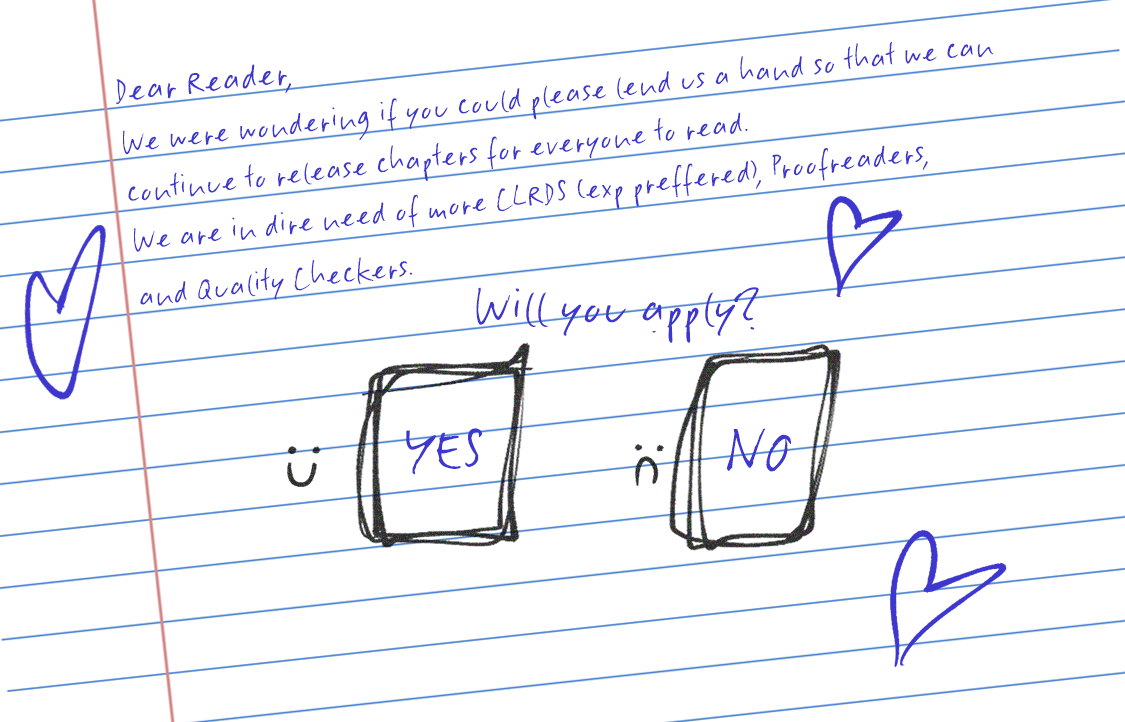 Dear Reader,
We were wondering if you could please lend us a hand so that we can
continue to release chapters for everyone to read.
We are in dire need of more CLRDS (exp preffered), Proofreaders,
and Quality Checkers.
Will you apply?
YES
NO